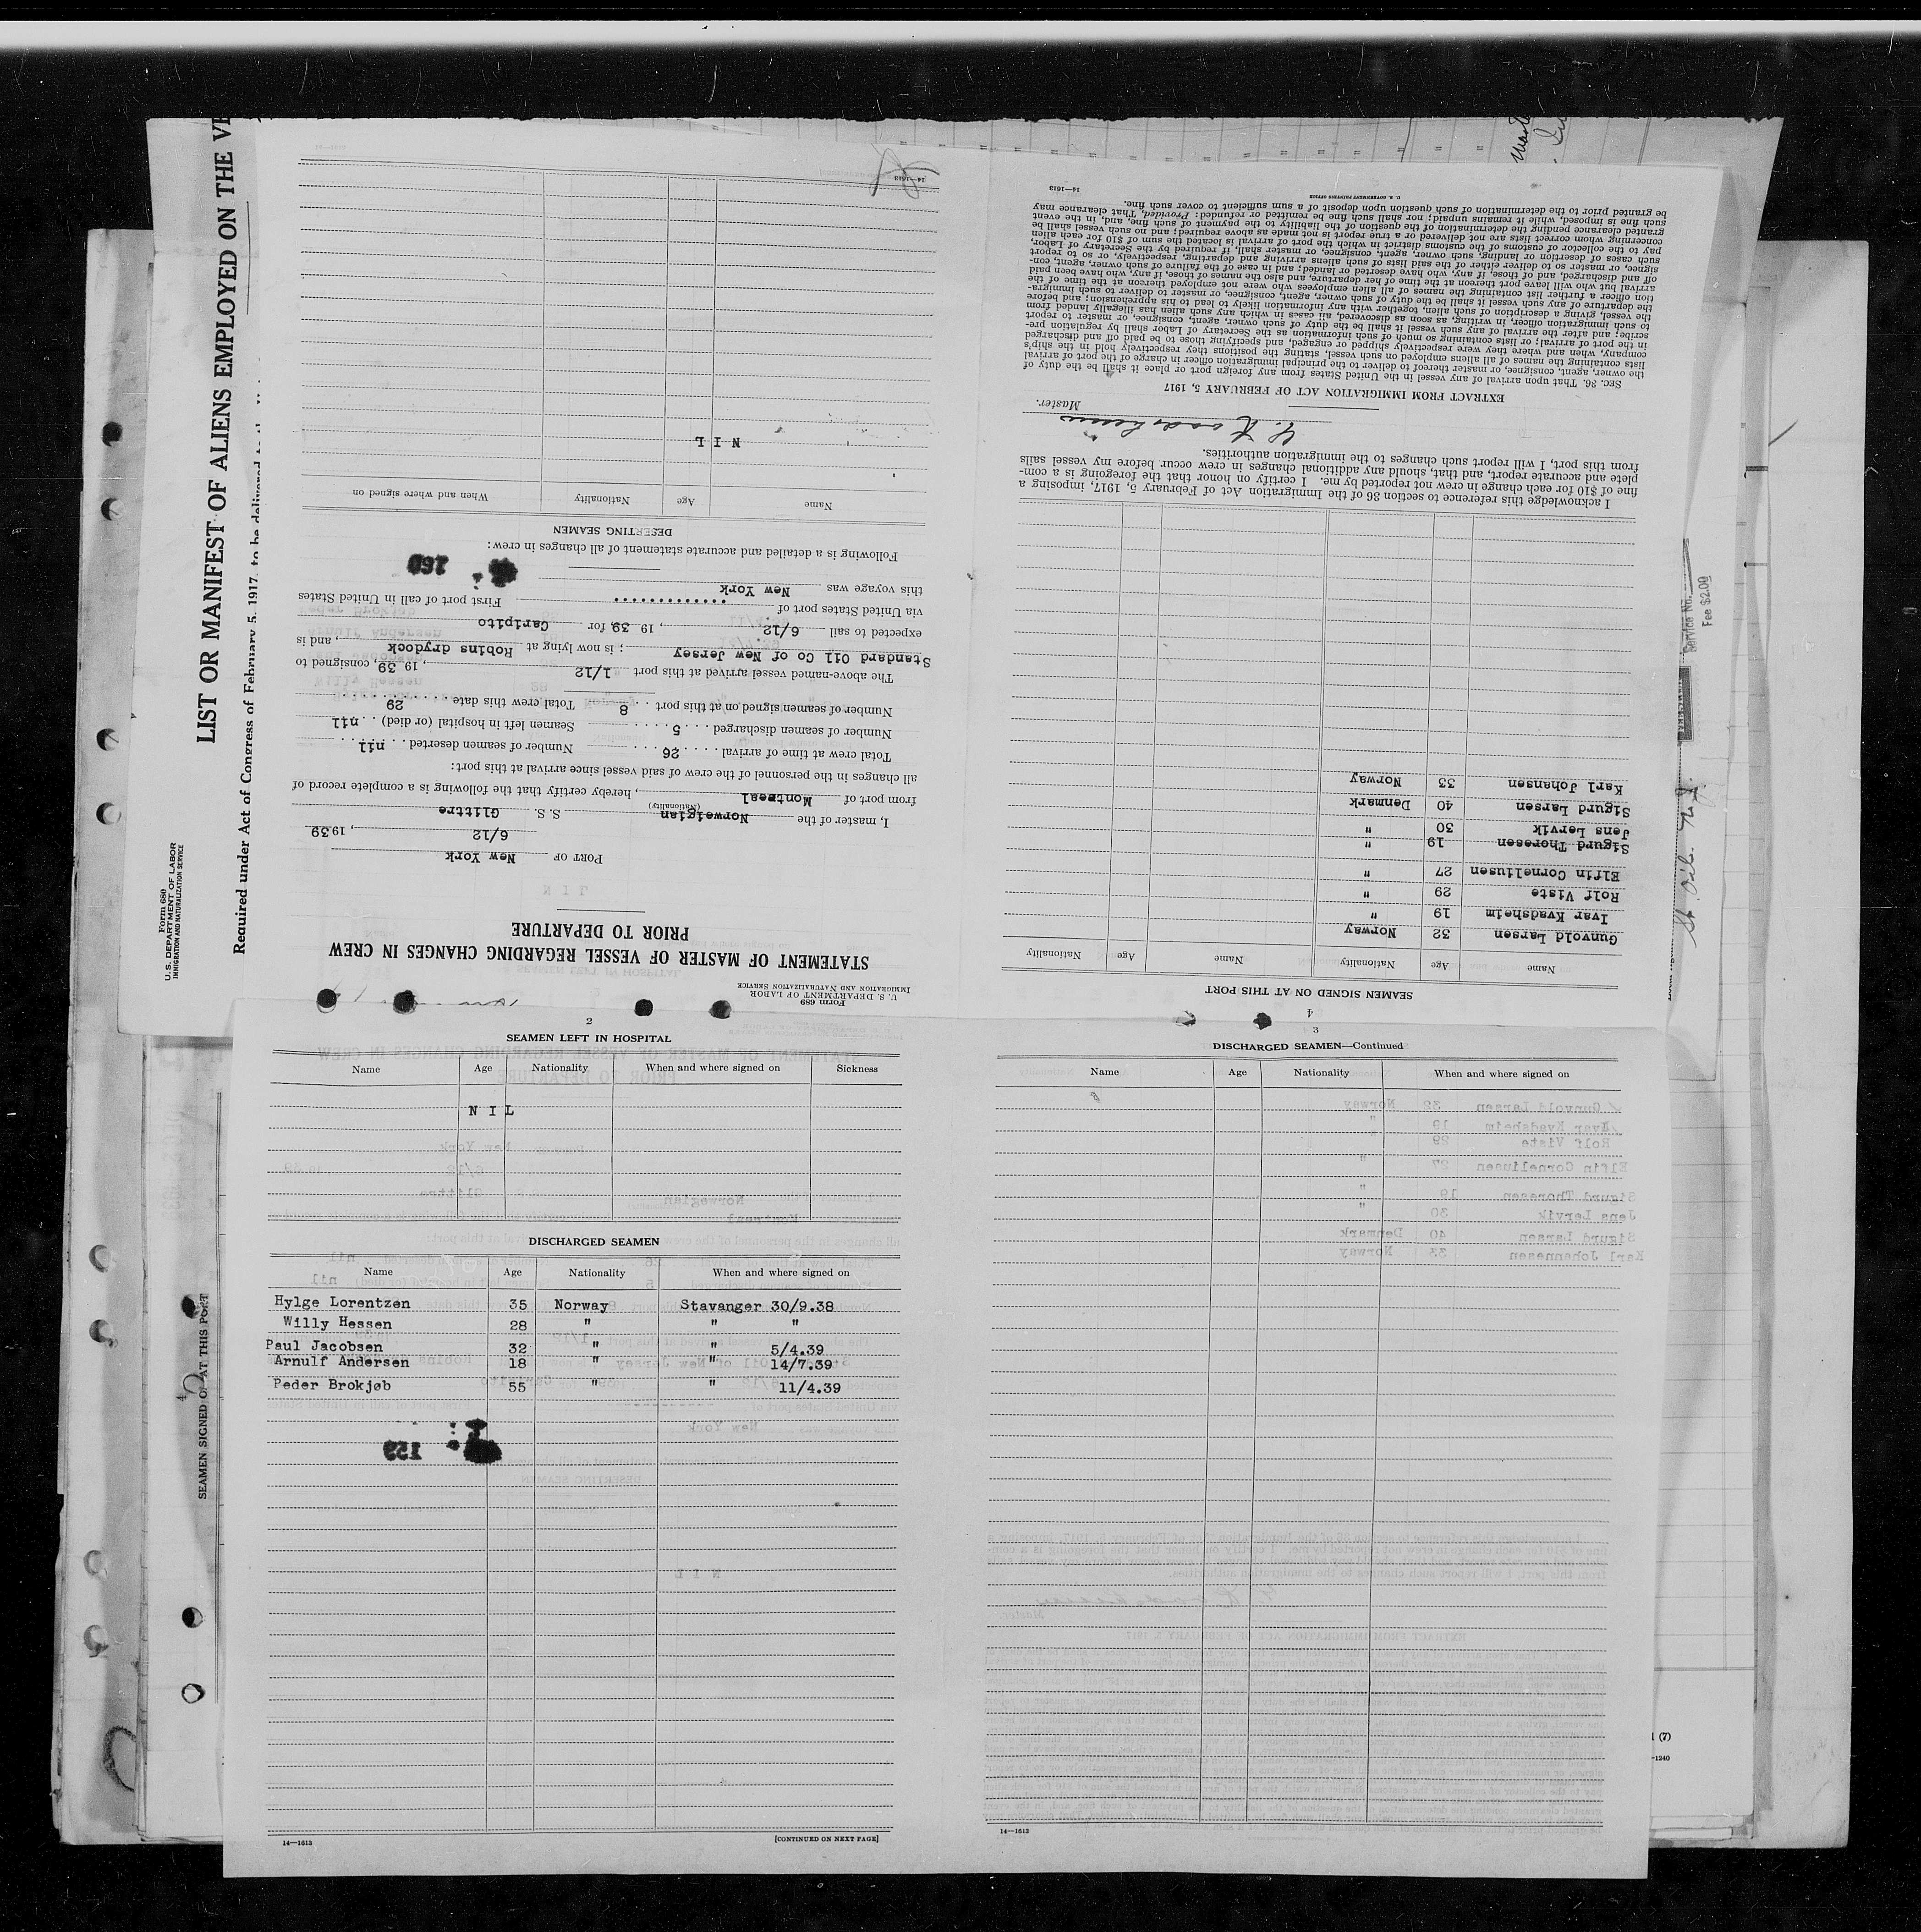 LIST OR MANIFEST OF ALIENS EMPLOYED ON THE
Required under Act of Congress of February 5, 1917, to be delivered to the
Form 680
U.S. DEPARTMENT OF LABOR
IMMIGRATION AND NATURALIZATION SERVICE
Form 689
U. S. DEPARTMENT OF LABOR
IMMIGRATION AND NATURALIZATION SERVICE
STATEMENT OF MASTER OF VESSEL REGARDING CHANGES IN CREW
PRIOR TO DEPARTURE
PORT OF New York
6/12, 1939
I, master of the Norweigian S. S. Glittre
(Nationality)
from port of Montreal, hereby certify that the following is a complete record of
all changes in the personnel of the crew of said vessel since arrival at this port:
Total crew at time of arrival . . . . 26 Number of seamen deserted . . . nil
Number of seamen discharged . . . . 5 Seamen left in hospital (or died) . . nil
Number of seamen signed on at this port . . 8 Total crew this date . . . . . . 29
The above-named vessel arrived at this port 1/12, 19 39, consigned to
Standard Oil Co of New Jersey; is now lying at Robins drydock, and is
expected to sail 6/12, 19 39, for Caripito
via United States port of . . . . . . . . . . . . . First port of call in United States
this voyage was New York
160
Following is a detailed and accurate statement of all changes in crew:
DESERTING SEAMEN
Name Age Nationality When and where signed on
N I L
14—1613
4
SEAMEN SIGNED ON AT THIS PORT
Name Age Nationality Name Age Nationality
Gunvold Larsen 32 Norway
Ivar Kvadsheim 19 "
Rolf Viste 29 "
Elfin Corneliusen 27 "
Sigurd Thoresen 19 "
Jens Lervik 30 "
Sigurd Larsen 40 Denmark
Karl Johansen 33 Norway
I acknowledge this reference to section 36 of the Immigration Act of February 5, 1917, imposing a
fine of $10 for each change in crew not reported by me. I certify on honor that the foregoing is a com-
plete and accurate report, and that, should any additional changes in crew occur before my vessel sails
from this port, I will report such changes to the immigration authorities.
Master.
EXTRACT FROM IMMIGRATION ACT OF FEBRUARY 5, 1917
SEC. 36. That upon arrival of any vessel in the United States from any foreign port or place it shall be the duty of
the owner, agent, consignee, or master thereof to deliver to the principal immigration officer in charge of the port of arrival
lists containing the names of all aliens employed on such vessel, stating the positions they respectively hold in the ship's
company, when and where they were respectively shipped or engaged, and specifying those to be paid off and discharged
in the port of arrival; or lists containing so much of such information as the Secretary of Labor shall by regulation pre-
scribe; and after the arrival of any such vessel it shall be the duty of such owner, agent, consignee, or master to report
to such immigration officer, in writing, as soon as discovered, all cases in which any such alien has illegally landed from
the vessel, giving a description of such alien, together with any information likely to lead to his apprehension; and before
the departure of any such vessel it shall be the duty of such owner, agent, consignee, or master to deliver to such immigra-
tion officer a further list containing the names of all alien employees who were not employed thereon at the time of the
arrival but who will leave port thereon at the time of her departure, and also the names of those, if any, who have been paid
off and discharged, and of those, if any, who have deserted or landed; and in case of the failure of such owner, agent, con-
signee, or master so to deliver either of the said lists of such aliens arriving and departing, respectively, or so to report
such cases of desertion or landing, such owner, agent, consignee, or master shall, if required by the Secretary of Labor,
pay to the collector of customs of the customs district in which the port of arrival is located the sum of $10 for each alien
concerning whom correct lists are not delivered or a true report is not made as above required; and no such vessel shall be
granted clearance pending the determination of the question of the liability to the payment of such fine, and, in the event
such fine is imposed, while it remains unpaid; nor shall such fine be remitted or refunded: Provided, That clearance may
be granted prior to the determination of such question upon deposit of a sum sufficient to cover such fine.
U. S. GOVERNMENT PRINTING OFFICE
14—1613
Service No.
Fee $2.00
St Oil N.J.
2
SEAMEN LEFT IN HOSPITAL
Name Age Nationality When and where signed on Sickness
N I L
DISCHARGED SEAMEN
Name Age Nationality When and where signed on
Hylge Lorentzen 35 Norway Stavanger 30/9.38
Willy Hessen 28 " " "
Paul Jacobsen 32 " " 5/4.39
Arnulf Andersen 18 " " 14/7.39
Peder Brokjøb 55 " " 11/4.39
159
14—1613 [CONTINUED ON NEXT PAGE]
3
DISCHARGED SEAMEN—Continued
Name Age Nationality When and where signed on
14—1613
SEAMEN SIGNED ON AT THIS PORT
4
(7)
-1240